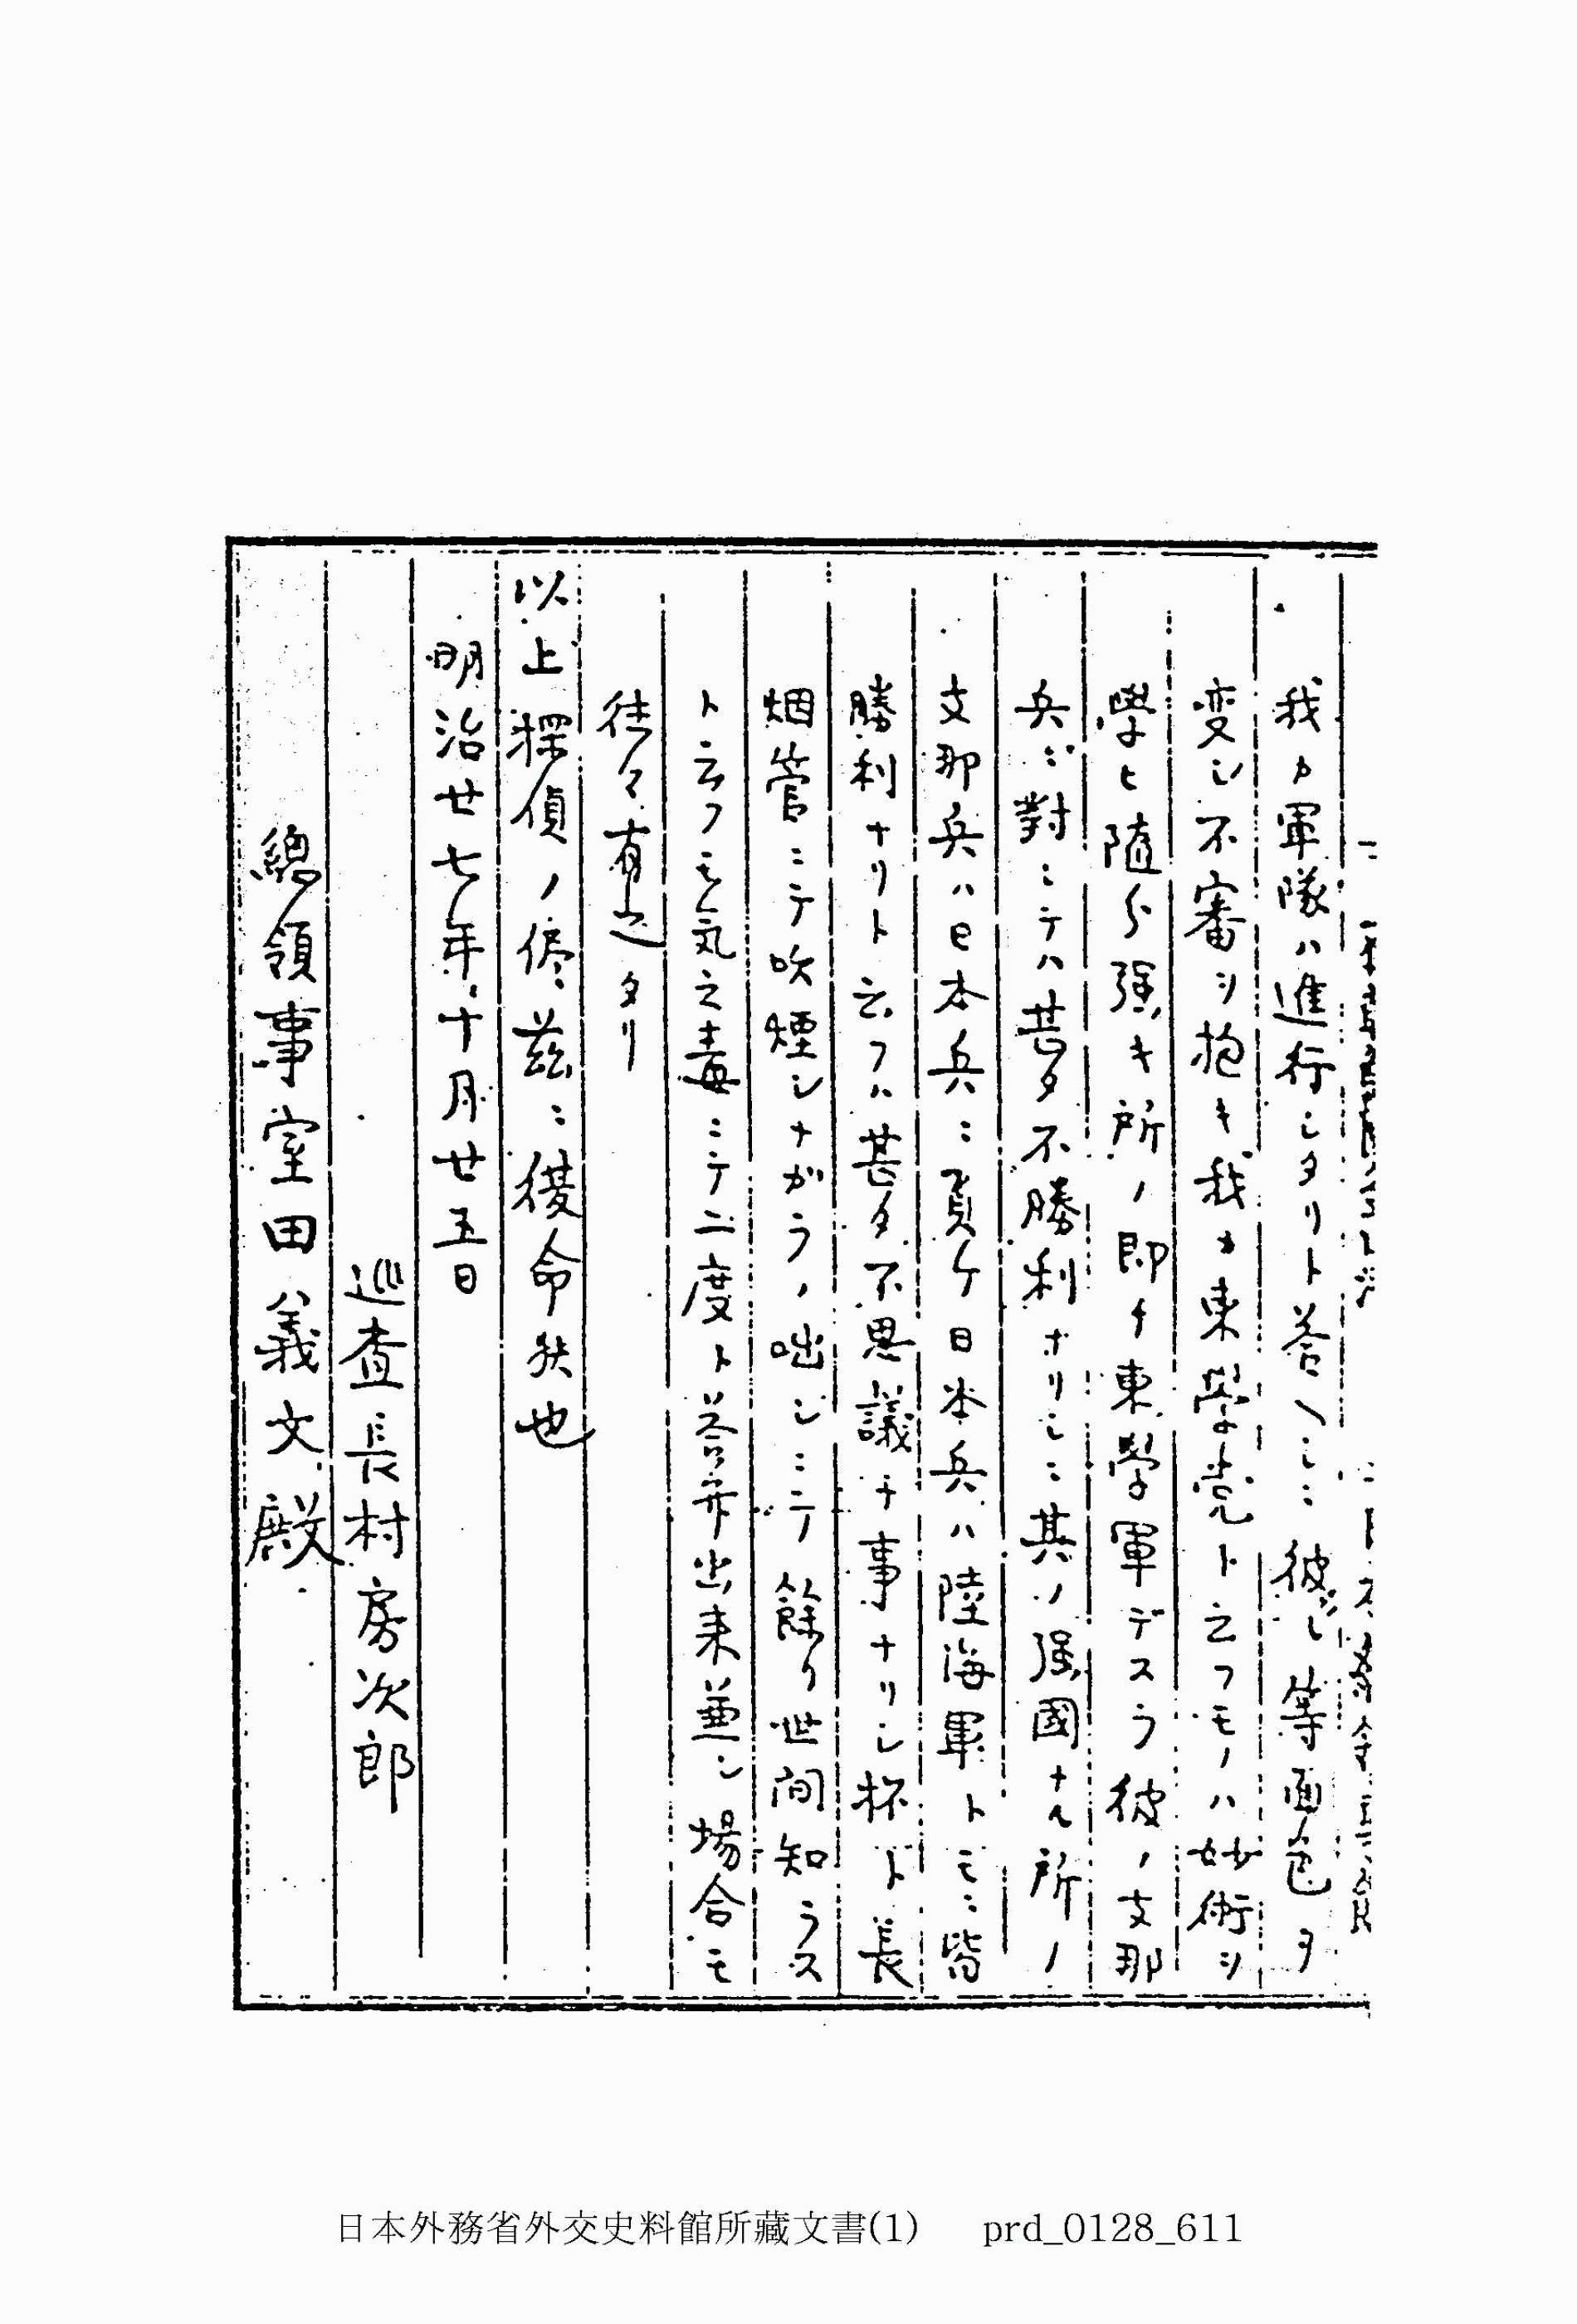 我カ軍隊ハ進行シタリト答ヘシニ彼レ等面色ヲ
変シ不審ヲ抱キ我カ東學党ト云フモノハ妙術ヲ
學ヒ随分强キ所ノ即チ東學軍デスラ彼ノ支那
兵ニ對シテハ甚タ不勝利ナリシニ其ノ强國ナル所ノ
支那兵ハ日本兵ニ負ケ日本兵ハ陸海軍トモニ皆
勝利ナリト云フハ甚タ不思議ナ事ナリシ杯ト長
烟管ニテ吹煙シナガラノ咄シニテ餘リ世間知ラス
ト云フモ気之毒ニテ二度ト答弁出来兼シ場合モ
往々有之タリ
以上探偵ノ侭茲ニ復命候也
明治廿七年十月廿五日
巡査長村房次郎
總領事室田義文殿
日本外務省外交史料館所藏文書(1) prd_0128_611